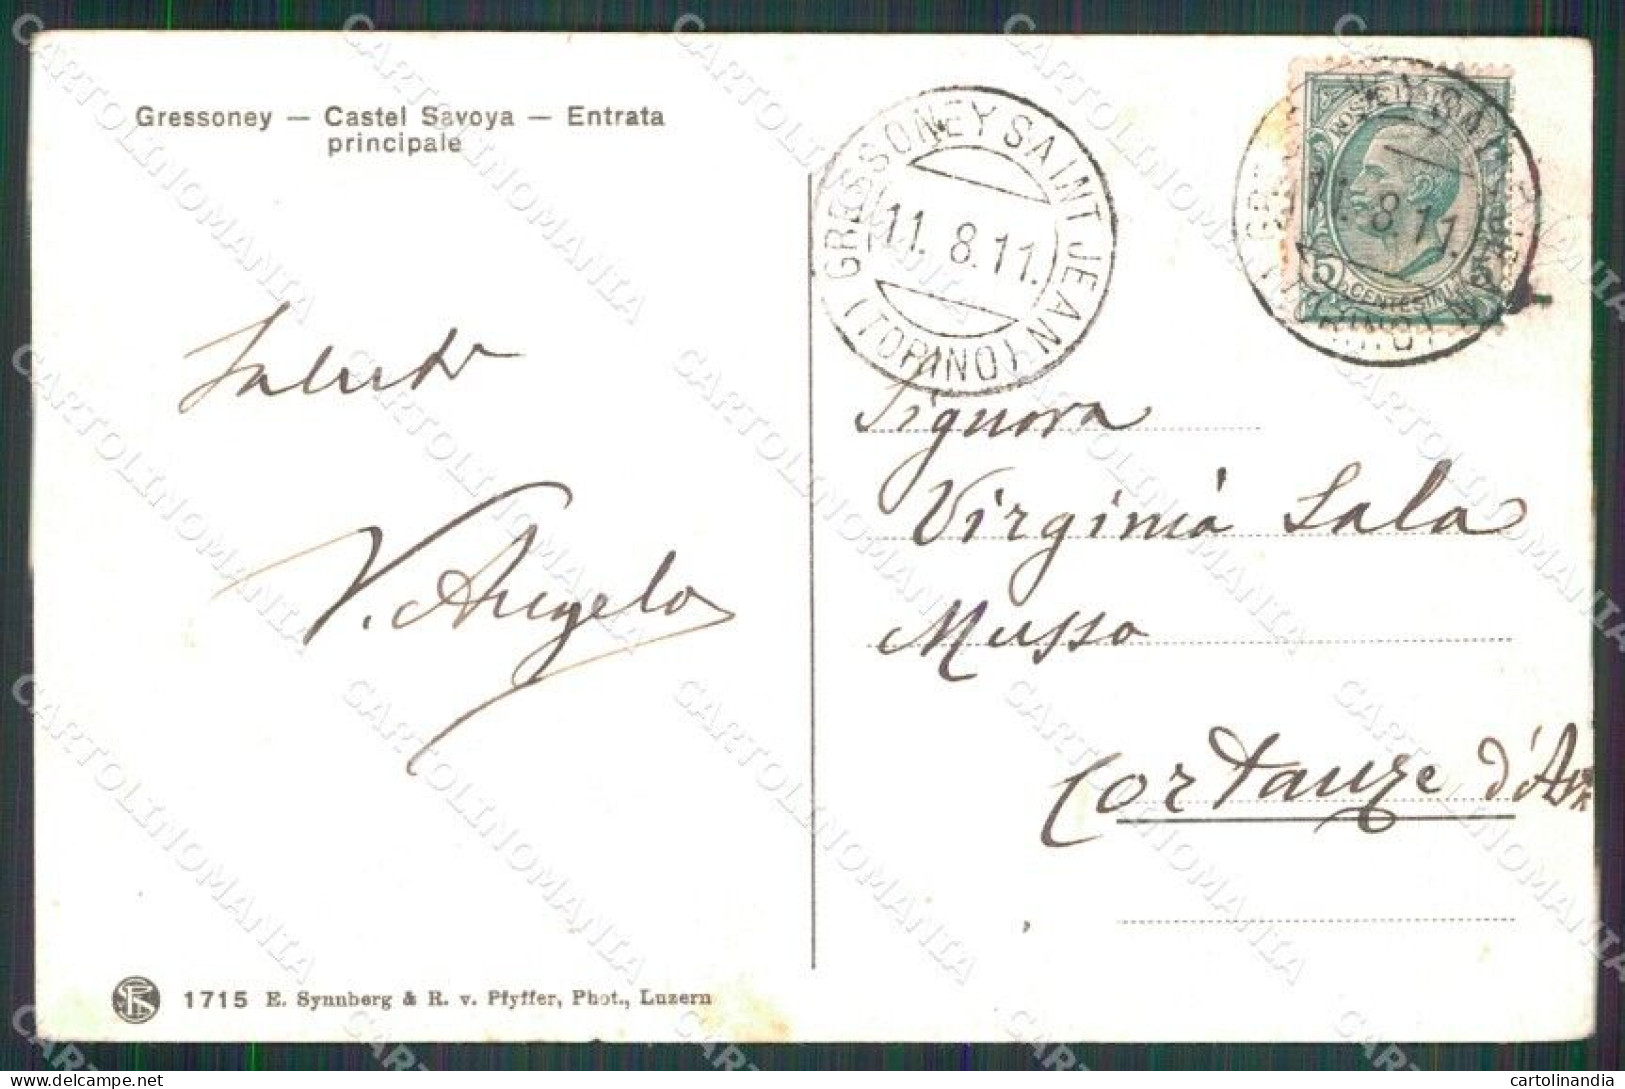 Gressoney — Castel Savoya — Entrata
principale
GRESSONEY SAINT JEAN (TORINO)
11.8.11.
11.8.11.
CENTESIMI
Saluti
V. Angelo
Signora
Virginia Sala
Musso
Cortanze d'Asti
1715 E. Synnberg & R. v. Pfyffer, Phot., Luzern
CARTOLINOMANIA
cartolinandia